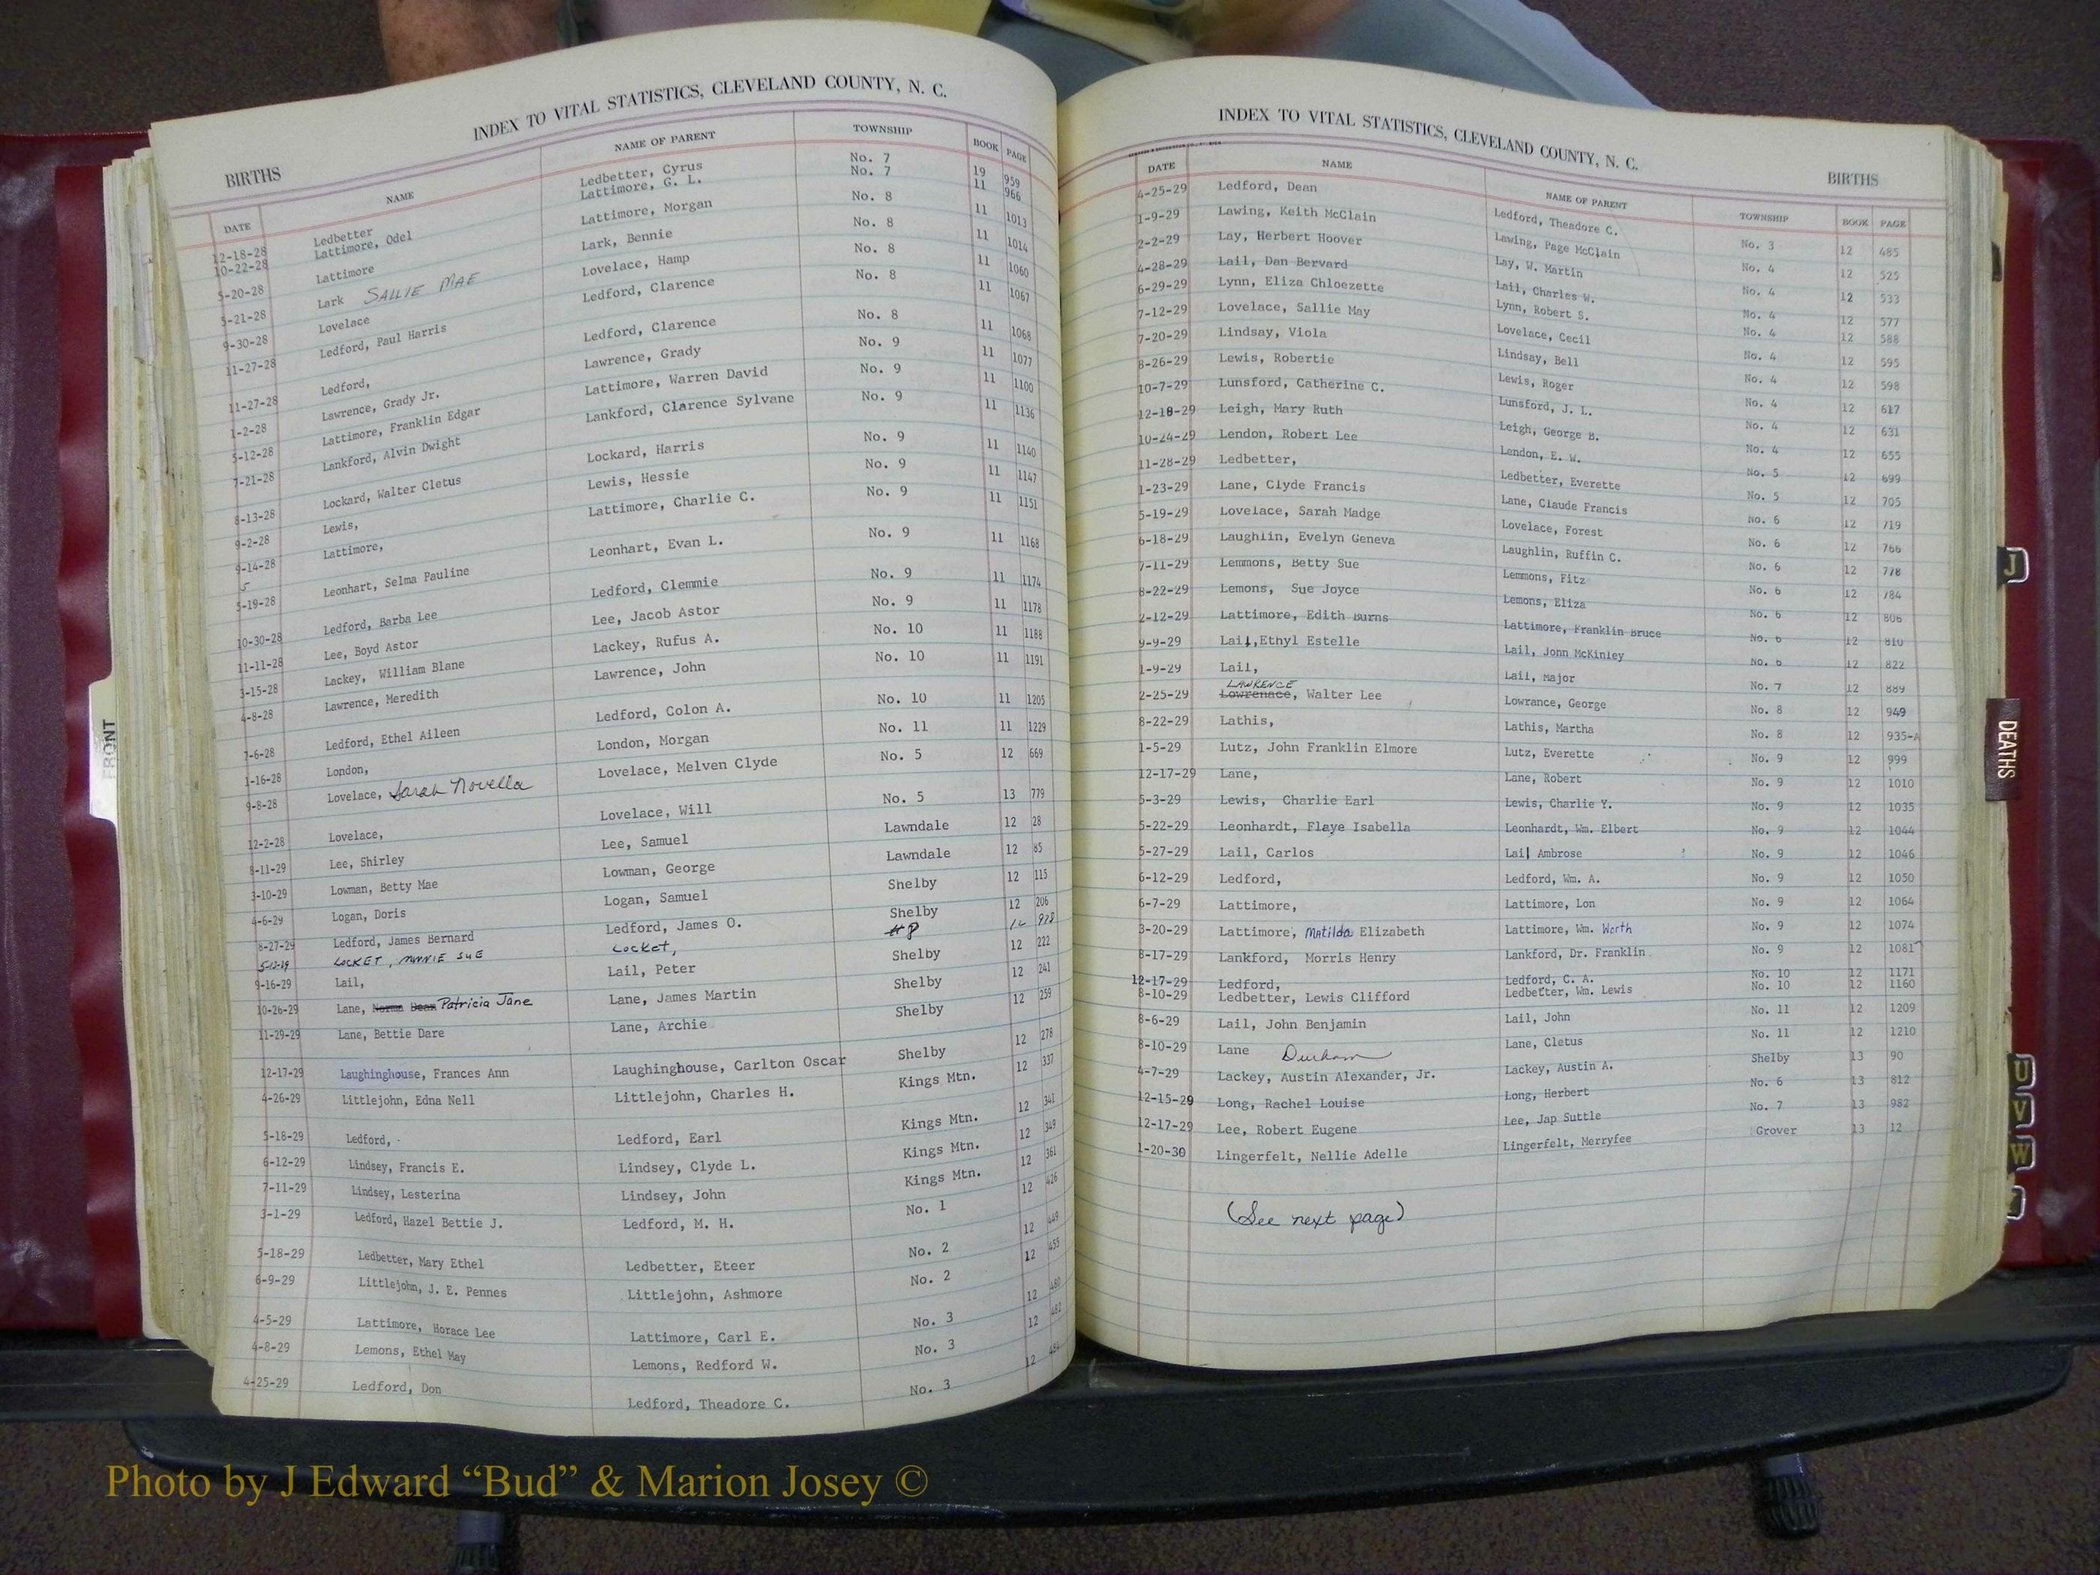 INDEX TO VITAL STATISTICS, CLEVELAND COUNTY, N. C.
BIRTHS
DATE NAME NAME OF PARENT TOWNSHIP BOOK PAGE
12-18-28 Ledbetter Ledbetter, Cyrus No. 7 19 959
10-22-28 Lattimore, Odel Lattimore, G. L. No. 7 11 966
5-20-28 Lattimore Lattimore, Morgan No. 8 11 1013
5-21-28 Lark SALLIE MAE Lark, Bennie No. 8 11 1014
9-30-28 Lovelace Lovelace, Hamp No. 8 11 1060
11-27-28 Ledford, Paul Harris Ledford, Clarence No. 8 11 1067
11-27-28 Ledford, Ledford, Clarence No. 8 11 1068
1-2-28 Lawrence, Grady Jr. Lawrence, Grady No. 9 11 1077
5-12-28 Lattimore, Franklin Edgar Lattimore, Warren David No. 9 11 1100
7-21-28 Lankford, Alvin Dwight Lankford, Clarence Sylvane No. 9 11 1136
8-13-28 Lockard, Walter Cletus Lockard, Harris No. 9 11 1140
9-2-28 Lewis, Lewis, Hessie No. 9 11 1147
9-14-28 Lattimore, Lattimore, Charlie C. No. 9 11 1151
5
5-19-28 Leonhart, Selma Pauline Leonhart, Evan L. No. 9 11 1168
10-30-28 Ledford, Barba Lee Ledford, Clemmie No. 9 11 1174
11-11-28 Lee, Boyd Astor Lee, Jacob Astor No. 9 11 1178
3-15-28 Lackey, William Blane Lackey, Rufus A. No. 10 11 1188
4-8-28 Lawrence, Meredith Lawrence, John No. 10 11 1191
7-6-28 Ledford, Ethel Aileen Ledford, Colon A. No. 10 11 1205
1-16-28 London, London, Morgan No. 11 11 1229
9-8-28 Lovelace, Sarah Novella Lovelace, Melven Clyde No. 5 12 669
12-2-28 Lovelace, Lovelace, Will No. 5 13 779
8-11-29 Lee, Shirley Lee, Samuel Lawndale 12 28
3-10-29 Lowman, Betty Mae Lowman, George Lawndale 12 85
4-6-29 Logan, Doris Logan, Samuel Shelby 12 115
8-27-29 Ledford, James Bernard Ledford, James O. Shelby 12 206
LOCKET, MINNIE SUE Locket, #8 12 928
9-16-29 Lail, Lail, Peter Shelby 12 222
10-26-29 Lane, Norma Dean Patricia Jane Lane, James Martin Shelby 12 241
11-29-29 Lane, Bettie Dare Lane, Archie Shelby 12 259
12-17-29 Laughinghouse, Frances Ann Laughinghouse, Carlton Oscar Shelby 12 278
4-26-29 Littlejohn, Edna Nell Littlejohn, Charles H. Kings Mtn. 12 337
5-18-29 Ledford, Ledford, Earl Kings Mtn. 12 341
6-12-29 Lindsey, Francis E. Lindsey, Clyde L. Kings Mtn. 12 349
7-11-29 Lindsey, Lesterina Lindsey, John Kings Mtn. 12 361
3-1-29 Ledford, Hazel Bettie J. Ledford, M. H. No. 1 12 426
5-18-29 Ledbetter, Mary Ethel Ledbetter, Eteer No. 2 12 449
6-9-29 Littlejohn, J. E. Pennes Littlejohn, Ashmore No. 2 12 455
4-5-29 Lattimore, Horace Lee Lattimore, Carl E. No. 3 12 480
4-8-29 Lemons, Ethel May Lemons, Redford W. No. 3 12 482
4-25-29 Ledford, Don Ledford, Theadore C. No. 3 12 484
INDEX TO VITAL STATISTICS, CLEVELAND COUNTY, N. C.
BIRTHS
DATE NAME NAME OF PARENT TOWNSHIP BOOK PAGE
4-25-29 Ledford, Dean Ledford, Theadore C. No. 3 12 485
1-9-29 Lawing, Keith McClain Lawing, Page McClain No. 4 12 525
2-2-29 Lay, Herbert Hoover Lay, W. Martin No. 4 12 533
4-28-29 Lail, Dan Bervard Lail, Charles W. No. 4 12 577
6-29-29 Lynn, Eliza Chloezette Lynn, Robert S. No. 4 12 588
7-12-29 Lovelace, Sallie May Lovelace, Cecil No. 4 12 595
7-20-29 Lindsay, Viola Lindsay, Bell No. 4 12 598
8-26-29 Lewis, Robertie Lewis, Roger No. 4 12 617
10-7-29 Lunsford, Catherine C. Lunsford, J. L. No. 4 12 631
12-18-29 Leigh, Mary Ruth Leigh, George B. No. 4 12 655
10-24-29 Lendon, Robert Lee Lendon, E. W. No. 5 12 699
11-28-29 Ledbetter, Ledbetter, Everette No. 5 12 705
1-23-29 Lane, Clyde Francis Lane, Claude Francis No. 6 12 719
5-19-29 Lovelace, Sarah Madge Lovelace, Forest No. 6 12 766
6-18-29 Laughlin, Evelyn Geneva Laughlin, Ruffin C. No. 6 12 778
7-11-29 Lemmons, Betty Sue Lemmons, Fitz No. 6 12 784
8-22-29 Lemons, Sue Joyce Lemons, Eliza No. 6 12 806
2-12-29 Lattimore, Edith Burns Lattimore, Franklin Bruce No. 6 12 810
9-9-29 Lail, Ethyl Estelle Lail, John McKinley No. 6 12 822
1-9-29 Lail, Lail, Major No. 7 12 889
LAWRENCE
2-25-29 Lowrenace, Walter Lee Lowrance, George No. 8 12 949
8-22-29 Lathis, Lathis, Martha No. 8 12 935-A
1-5-29 Lutz, John Franklin Elmore Lutz, Everette No. 9 12 999
12-17-29 Lane, Lane, Robert No. 9 12 1010
5-3-29 Lewis, Charlie Earl Lewis, Charlie Y. No. 9 12 1035
5-22-29 Leonhardt, Flaye Isabella Leonhardt, Wm. Elbert No. 9 12 1044
5-27-29 Lail, Carlos Lail Ambrose No. 9 12 1046
6-12-29 Ledford, Ledford, Wm. A. No. 9 12 1050
6-7-29 Lattimore, Lattimore, Lon No. 9 12 1064
3-20-29 Lattimore, Matilda Elizabeth Lattimore, Wm. Worth No. 9 12 1074
8-17-29 Lankford, Morris Henry Lankford, Dr. Franklin No. 9 12 1081
12-17-29 Ledford, Ledford, C. A. No. 10 12 1171
8-10-29 Ledbetter, Lewis Clifford Ledbetter, Wm. Lewis No. 10 12 1160
8-6-29 Lail, John Benjamin Lail, John No. 11 12 1209
8-10-29 Lane Durham Lane, Cletus No. 11 12 1210
4-7-29 Lackey, Austin Alexander, Jr. Lackey, Austin A. Shelby 13 90
12-15-29 Long, Rachel Louise Long, Herbert No. 6 13 812
12-17-29 Lee, Robert Eugene Lee, Jap Suttle No. 7 13 982
1-20-30 Lingerfelt, Nellie Adelle Lingerfelt, Merryfee Grover 13 12
(See next page)
FRONT
J
DEATHS
U
V
W
Photo by J Edward “Bud” & Marion Josey ©